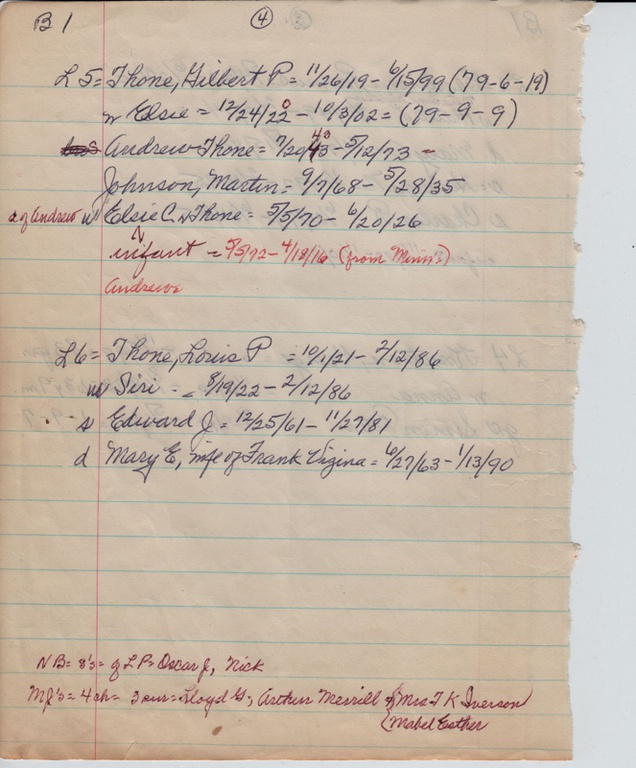 B 1 4
L 5 = Thone, Gilbert P = 11/26/19 - 6/15/99 (79-6-19)
w Elsie = 12/24/22 0 - 10/3/02 = (79-9-9)
Andrew Thone = 7/20/43 - 5/12/73 -
Johnson, Martin = 9/7/68 - 5/28/35
d of Andrew w Elsie C. Thone = 5/5/70 - 6/20/26
infant = 5/5/72 - 4/18/16 (from Minn?)
Andrews
L 6 = Thone, Louis P = 10/1/21 - 2/12/86
w Siri - = 8/19/22 - 2/12/86
s Edward J = 12/25/61 - 11/27/81
d Mary E, wife of Frank Vizina = 6/27/63 - 1/13/90
NB = 8's = of L P = Oscar J, Nick
MJ's = 4 ch = 3 sur = Lloyd G, Arthur Merrill { Mrs T K Iverson
{ Mabel Esther